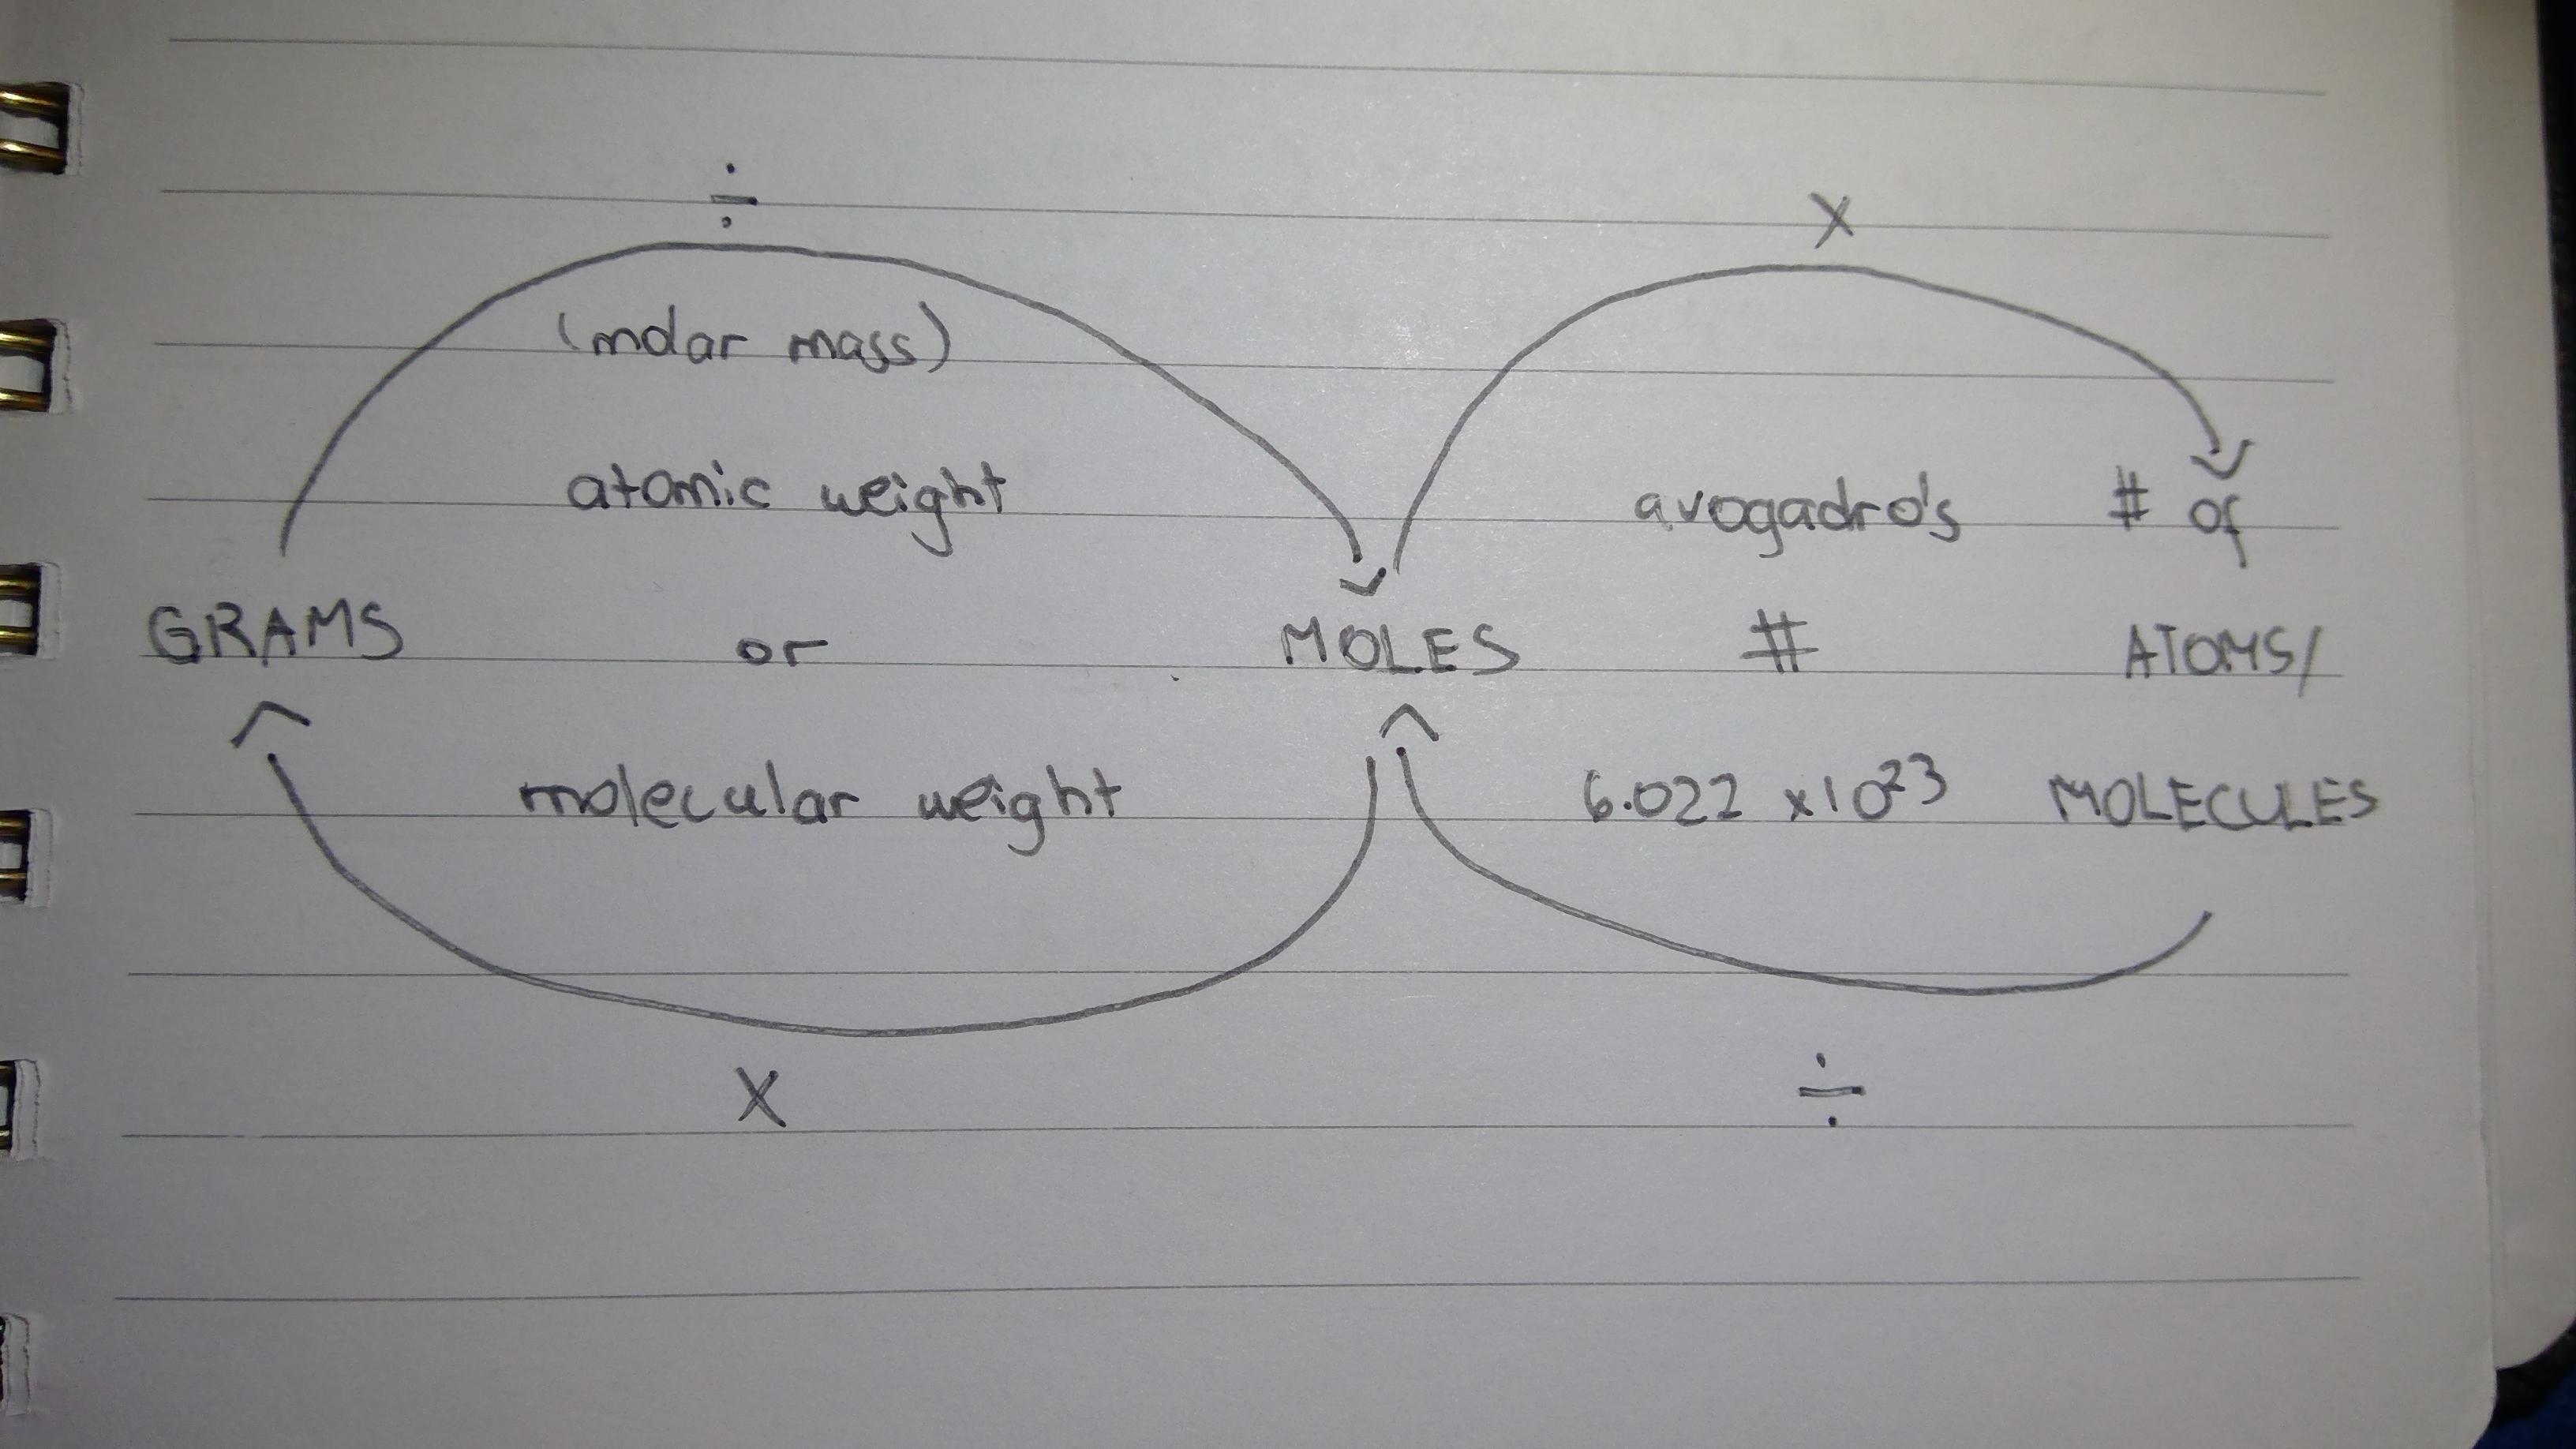 ÷ X
(molar mass)
atomic weight avogadro's # of
GRAMS or MOLES # ATOMS/
molecular weight 6.022 x10²³ MOLECULES
X ÷